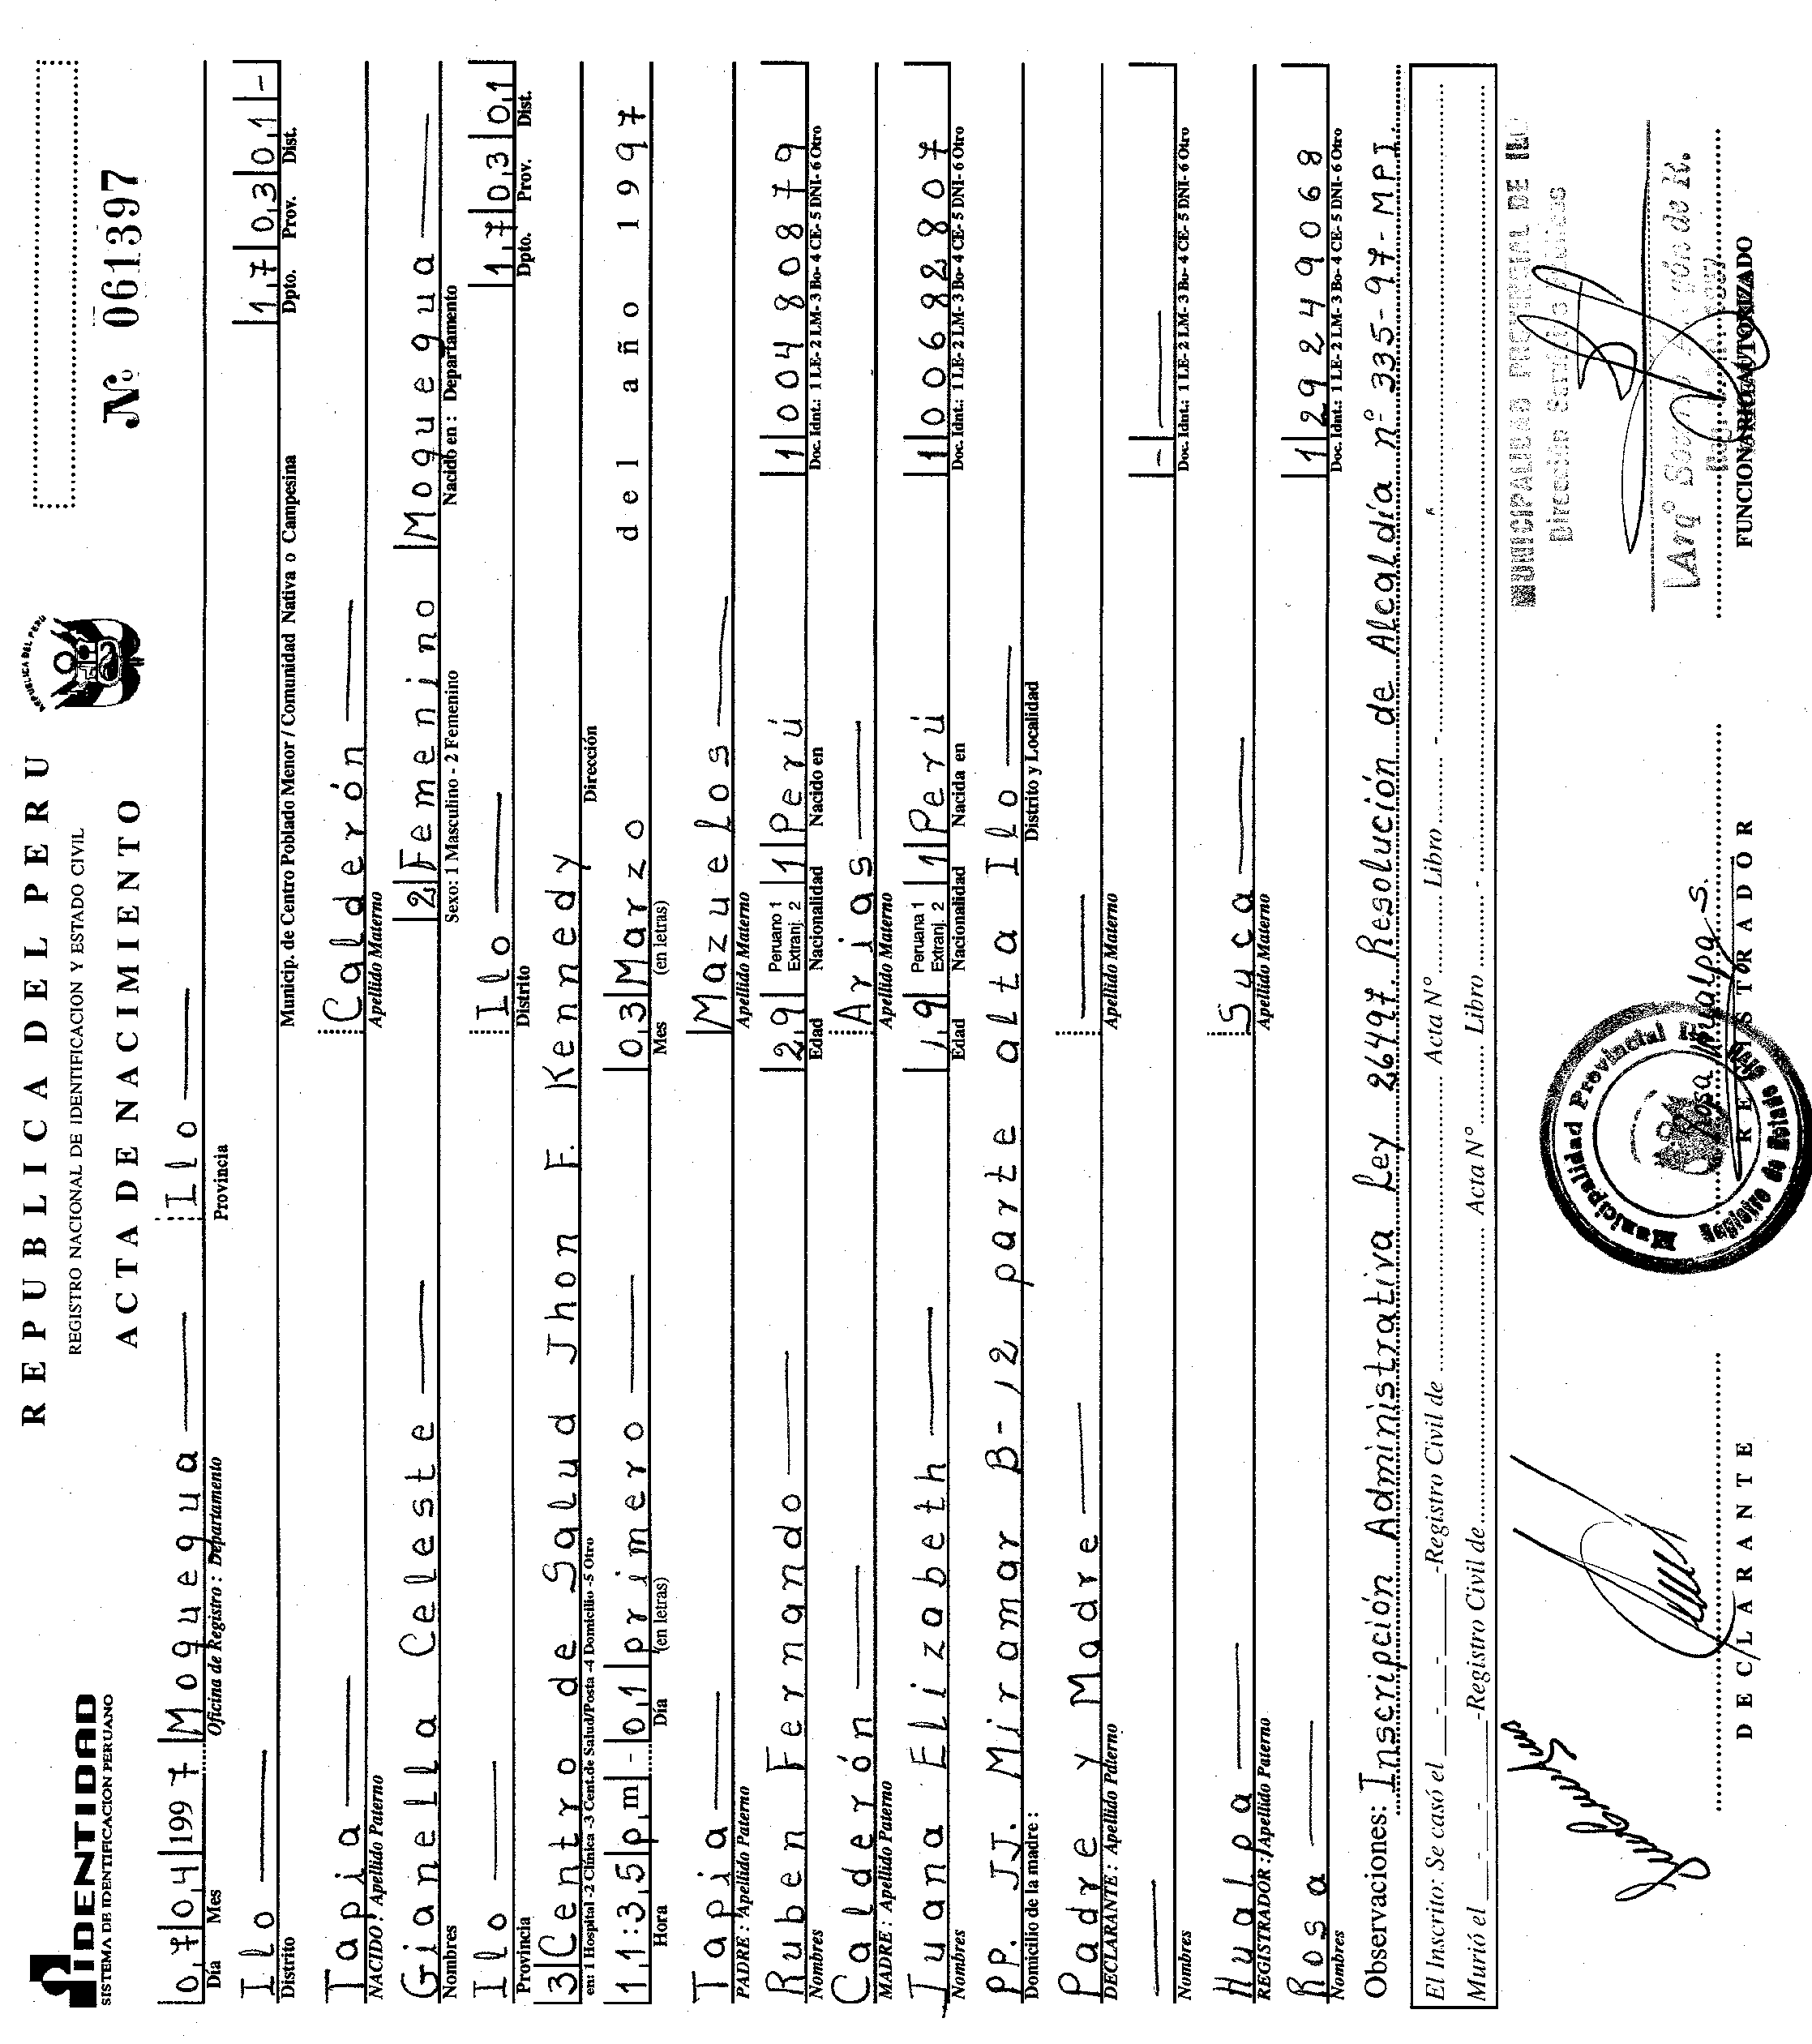 IDENTIDAD
SISTEMA DE IDENTIFICACION PERUANO
REPUBLICA DEL PERU
REGISTRO NACIONAL DE IDENTIFICACION Y ESTADO CIVIL
ACTA DE NACIMIENTO
REPUBLICA DEL PERU
Nº 061397
0,7|0,4|1997|Moquegua — Ilo —
Día Mes Oficina de Registro : Departamento Provincia
Ilo — 1,7|0,3|0,1|-
Distrito Municip. de Centro Poblado Menor / Comunidad Nativa o Campesina Dpto. Prov. Dist.
Tapia — Calderón —
NACIDO : Apellido Paterno Apellido Materno
Gianella Celeste — 2|Femenino|Moquegua —
Nombres Sexo: 1 Masculino - 2 Femenino Nacido en : Departamento
Ilo — Ilo — 1,7|0,3|0,1
Provincia Distrito Dpto. Prov. Dist.
3|Centro de Salud Jhon F. Kennedy
en: 1 Hospital -2 Clínica -3 Cent.de Salud/Posta -4 Domicilio -5 Otro Dirección
11:35|p,m-|0,1|primero — 0,3|Marzo del año 1997
Hora Día (en letras) Mes (en letras)
Tapia — Mazuelos —
PADRE : Apellido Paterno Apellido Materno
Ruben Fernando — 2,9| Peruano 1 Extranj. 2 |1|Perú |1|00480879
Nombres Edad Nacionalidad Nacido en Doc. Idnt.: 1 LE- 2 LM- 3 Bo- 4 CE- 5 DNI- 6 Otro
Calderón — Arias —
MADRE : Apellido Paterno Apellido Materno
Juana Elizabeth — 1,9| Peruana 1 Extranj. 2 |1|Perú |1|00682807
Nombres Edad Nacionalidad Nacida en Doc. Idnt.: 1 LE- 2 LM- 3 Bo- 4 CE- 5 DNI- 6 Otro
PP. JJ. Miramar B-12 parte alta Ilo —
Domicilio de la madre : Distrito y Localidad
Padre y Madre — —
DECLARANTE : Apellido Paterno Apellido Materno
— |-| —
Nombres Doc. Idnt.: 1 LE- 2 LM- 3 Bo- 4 CE- 5 DNI- 6 Otro
Hualpa — Suca —
REGISTRADOR : Apellido Paterno Apellido Materno
Rosa — |1|29249068
Nombres Doc. Idnt.: 1 LE- 2 LM- 3 Bo- 4 CE- 5 DNI- 6 Otro
Observaciones: Inscripción Administrativa Ley 26497 Resolución de Alcaldía nº 335-97-MPI
El Inscrito: Se casó el __-__-__-Registro Civil de ........ Acta N° ........ Libro ........
Murió el __-__-__-Registro Civil de ........ Acta N° ........ Libro ........
MUNICIPALIDAD PROVINCIAL DE ILO
Dirección
Municipalidad Provincial
Registro de Estado Civil
Rosa Hualpa S.
Arqº
DECLARANTE
REGISTRADOR
FUNCIONARIO AUTORIZADO